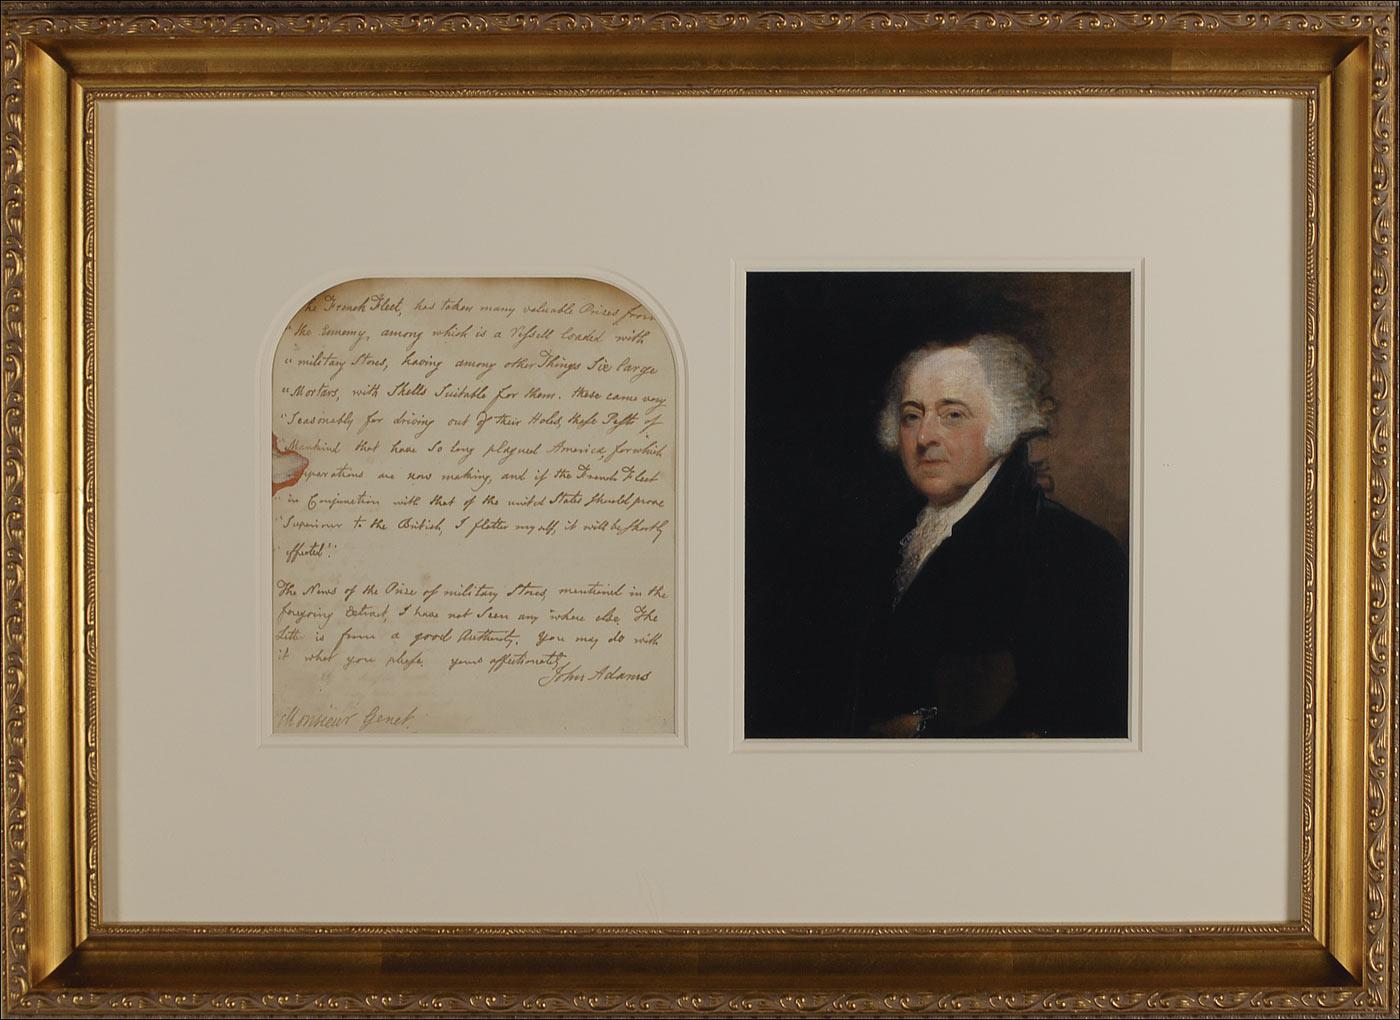 he French Fleet, has taken many valuable Prizes from
"the Ennemy, among which is a Vessell loaded with
"military Stores, having among other Things Six large
"Mortars, with Shells Suitable for them. these came very
"Seasonably for driving out of their Holes, these Pests of
"Mankind that have So long plagued America, for which
"parations are now making, and if the French Fleet
"in Conjunction with that of the united States Should prove
"Superiour to the British, I flatter myself, it will be Shortly
effected".
The News of the Prize of military Stores, mentioned in the
foregoing Extract, I have not Seen any where else. The
Letter is from a good Authority. You may do with
it what you please. yours affectionately
John Adams
Monsieur Genet.